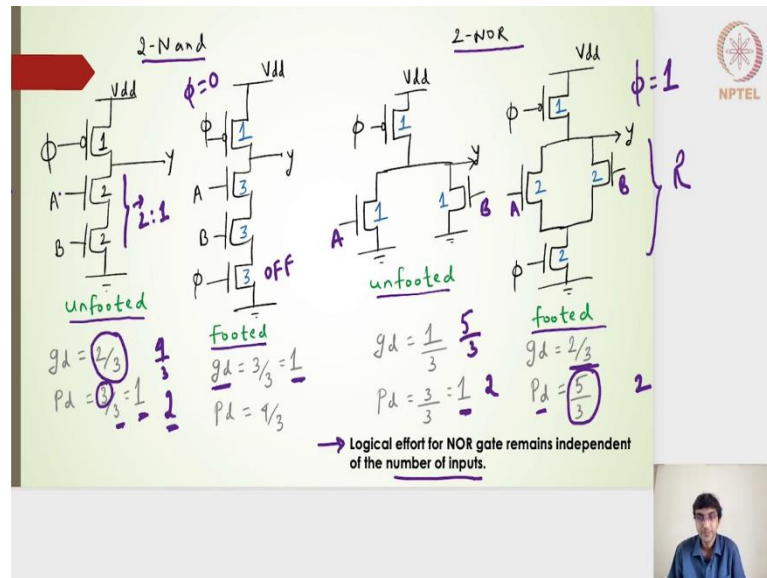 2-Nand
Vdd
ϕ
1
y
A
2
B
2
→ 2:1
unfooted
gd = 2/3 4/3
Pd = 3/3 = 1 2
ϕ=0
Vdd
ϕ
1
y
A
3
B
3
ϕ
3
OFF
footed
gd = 3/3 = 1
Pd = 4/3
2-NOR
Vdd
ϕ
1
y
A
1
1
B
unfooted
gd = 1/3 5/3
Pd = 3/3 = 1 2
Vdd
ϕ=1
ϕ
1
y
A
2
2
B
R
ϕ
2
footed
gd = 2/3
Pd = 5/3 2
→ Logical effort for NOR gate remains independent
of the number of inputs.
NPTEL